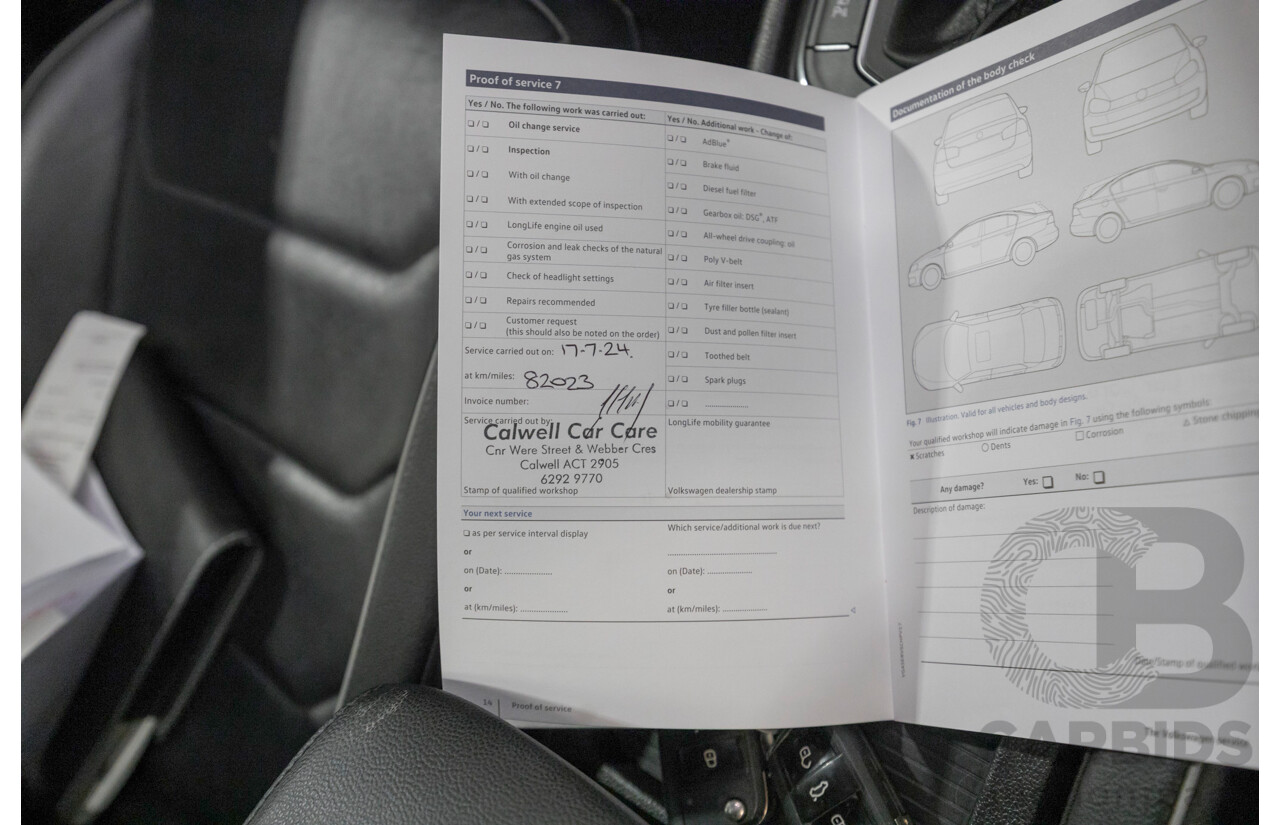 Proof of service 7
Yes / No. The following work was carried out:
❏ / ❏ Oil change service
❏ / ❏ Inspection
❏ / ❏ With oil change
❏ / ❏ With extended scope of inspection
❏ / ❏ LongLife engine oil used
❏ / ❏ Corrosion and leak checks of the natural
gas system
❏ / ❏ Check of headlight settings
❏ / ❏ Repairs recommended
❏ / ❏ Customer request
(this should also be noted on the order)
Service carried out on: 17-7-24.
at km/miles: 82023
Invoice number:
Service carried out by:
Calwell Car Care
Cnr Were Street & Webber Cres
Calwell ACT 2905
6292 9770
Stamp of qualified workshop
Yes / No. Additional work - Change of:
❏ / ❏ AdBlue®
❏ / ❏ Brake fluid
❏ / ❏ Diesel fuel filter
❏ / ❏ Gearbox oil: DSG®, ATF
❏ / ❏ All-wheel drive coupling: oil
❏ / ❏ Poly V-belt
❏ / ❏ Air filter insert
❏ / ❏ Tyre filler bottle (sealant)
❏ / ❏ Dust and pollen filter insert
❏ / ❏ Toothed belt
❏ / ❏ Spark plugs
❏ / ❏ ..................
LongLife mobility guarantee
Volkswagen dealership stamp
Your next service
❏ as per service interval display
or
on (Date): ..................
or
at (km/miles): ..................
Which service/additional work is due next?
..........................................
on (Date): ..................
or
at (km/miles): ..................
14 Proof of service
Documentation of the body check
Fig. 7 Illustration. Valid for all vehicles and body designs.
Your qualified workshop will indicate damage in Fig. 7 using the following symbols:
× Scratches ○ Dents □ Corrosion △ Stone chipping
Any damage? Yes: ❏ No: ❏
Description of damage:
Date/Stamp of qualified
CB
CARBIDS